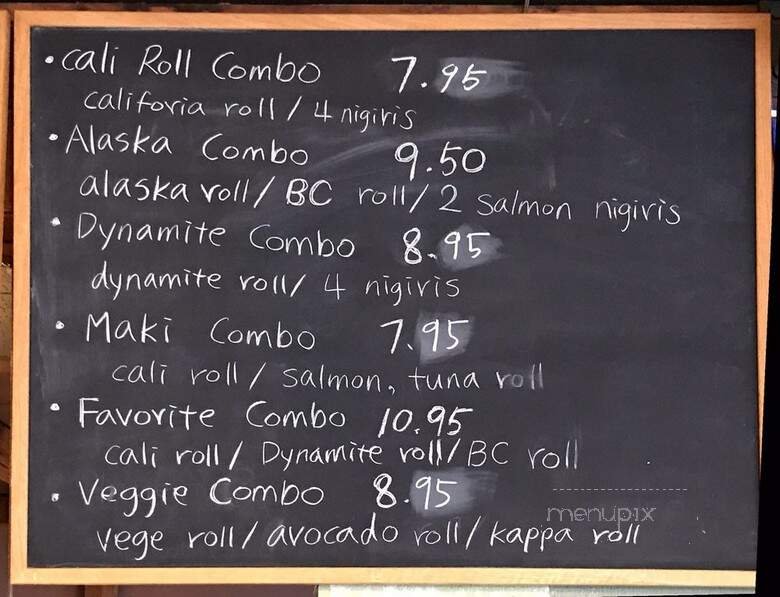 • Cali Roll Combo 7.95
califovia roll / 4 nigiris
• Alaska Combo 9.50
alaska roll / BC roll / 2 Salmon nigiris
• Dynamite Combo 8.95
dynamite roll / 4 nigiris
• Maki Combo 7.95
cali roll / salmon, tuna roll
• Favorite Combo 10.95
cali roll / Dynamite roll / BC roll
• Veggie Combo 8.95
vege roll / avocado roll / kappa roll
menupix